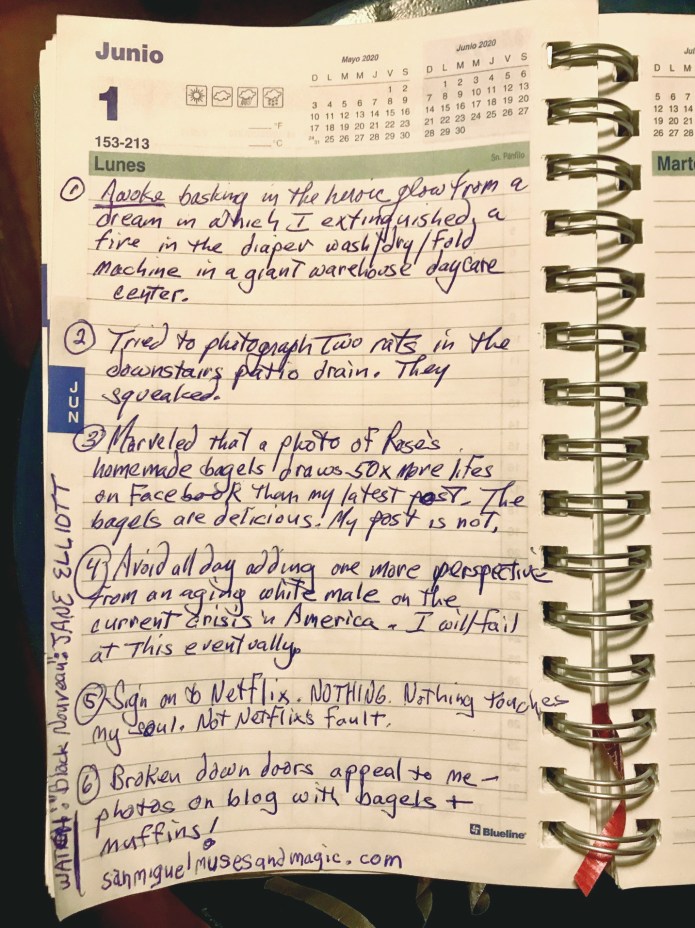 Junio
1
153-213
°F
°C
Mayo 2020
D L M M J V S
1 2
3 4 5 6 7 8 9
10 11 12 13 14 15 16
17 18 19 20 21 22 23
24/31 25 26 27 28 29 30
Junio 2020
D L M M J V S
1 2 3 4 5 6
7 8 9 10 11 12 13
14 15 16 17 18 19 20
21 22 23 24 25 26 27
28 29 30
Lunes
Sn. Panfilo
1 Awoke basking in the heroic glow from a
dream in which I extinguished a
fire in the diaper wash/dry/fold
machine in a giant warehouse daycare
center.
2 Tried to photograph two rats in the
downstairs patio drain. They
squeaked.
3 Marveled that a photo of Rose's
homemade bagels draws 50x more likes
on Facebook than my latest post. The
bagels are delicious. My post is not.
4 Avoid all day adding one more perspective
from an aging white male on the
current crisis in America. I will fail
at this eventually.
5 Sign on to Netflix. NOTHING. Nothing touches
my soul. Not Netflix's fault.
6 Broken down doors appeal to me –
photos on blog with bagels +
muffins!
sanmiguelmusesandmagic.com
Blueline
JUN
"Black Nouveau": JANE ELLIOTT
Jul
D L M
5 6 7
12 13 14
19 20 21
26 27 28
Mart